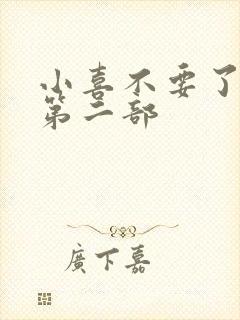 小喜不要了
第二部
廣下嘉